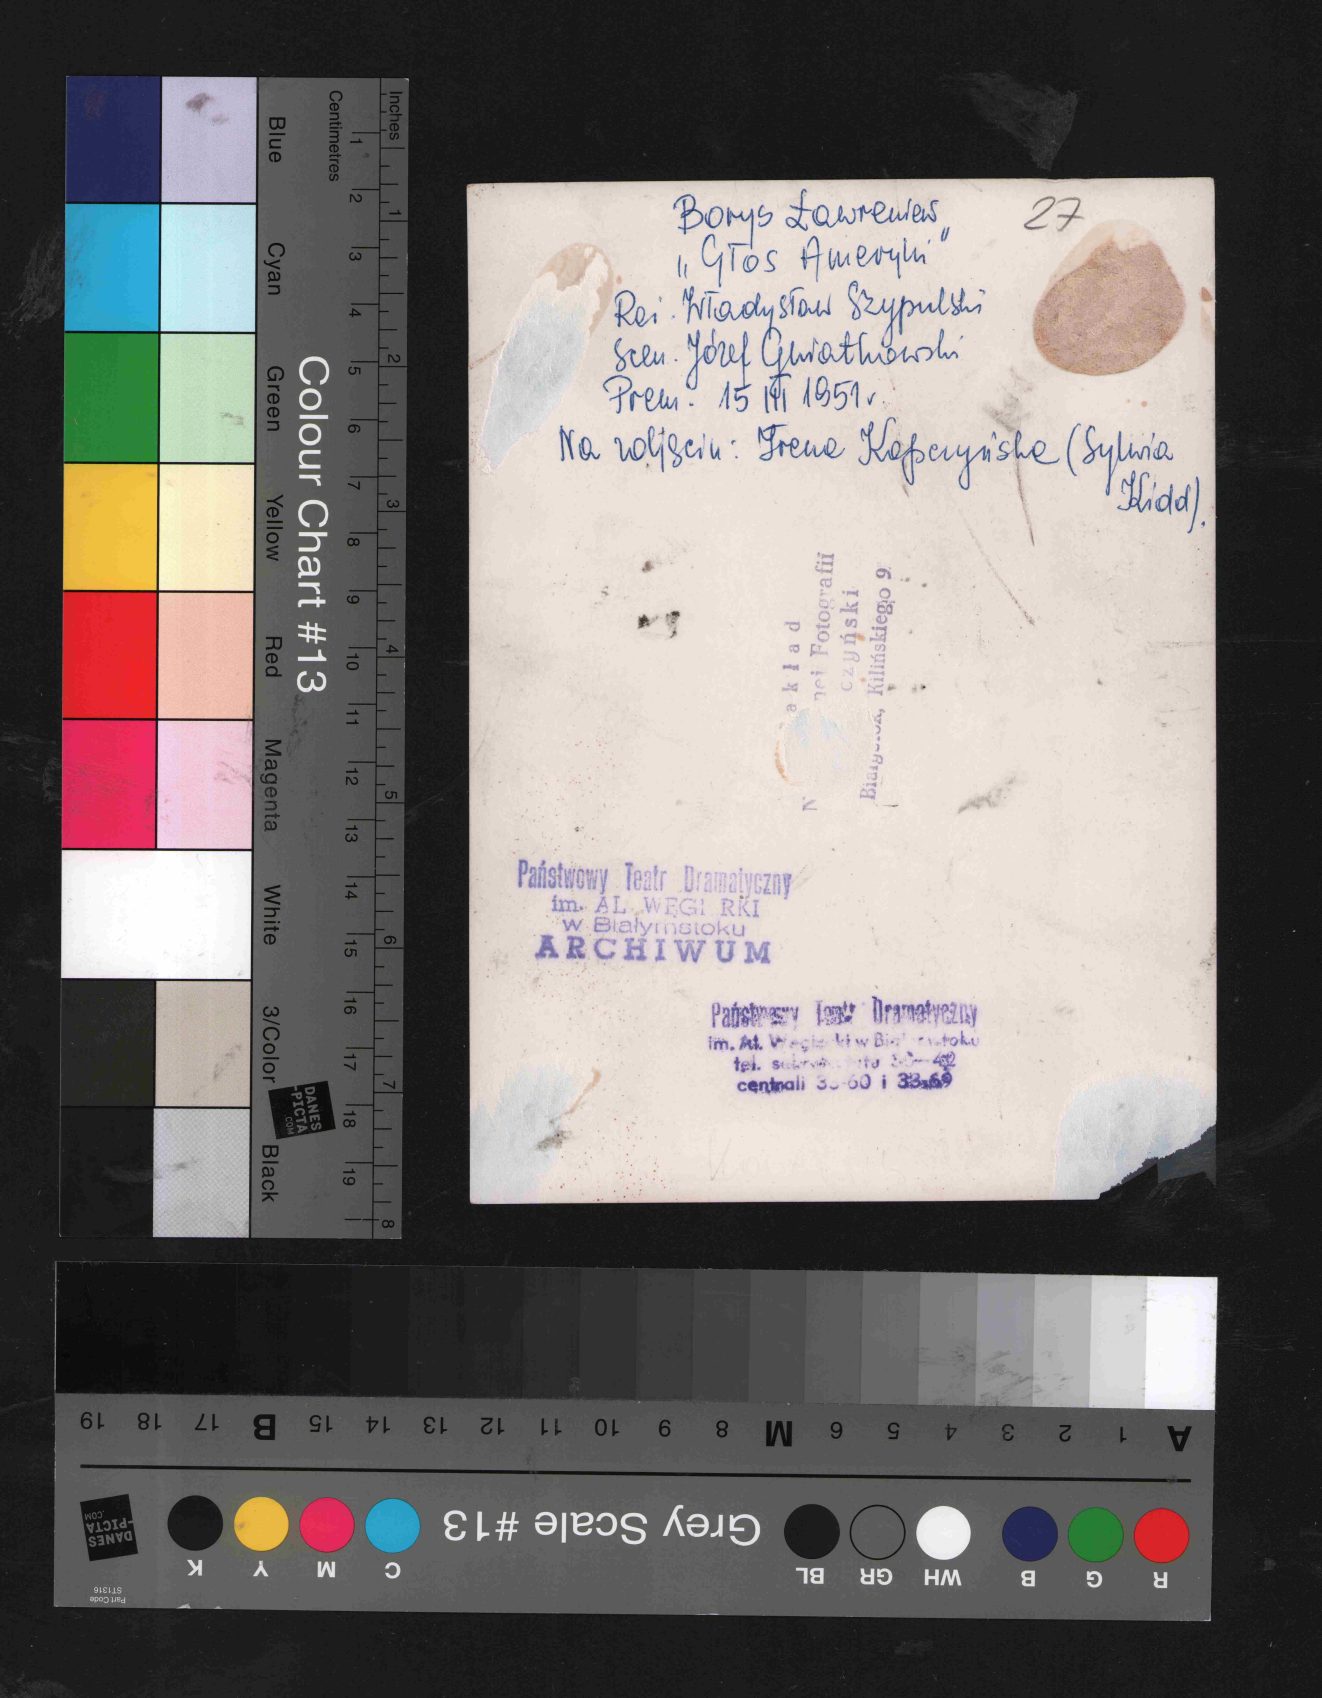 Borys Ławreniew
„Głos Ameryki”
Reż. Władysław Szypulski
Scen. Józef Gwiatkowski
Prem. 15 III 1951 r.
Na zdjęciu: Irena Kopczyńska (Sylwia
Kidd).
27
akład
nej Fotografii
czyński
Kilińskiego 9
Państwowy Teatr Dramatyczny
im. AL WĘGI RKI
w Białymstoku
ARCHIWUM
Państwowy Teatr Dramatyczny
im. Al. Węgierki w Białymstoku
tel.
centrali 33-60 i 33-69
Inches
Centimetres
1 2 3 4 5 6 7 8 9 10 11 12 13 14 15 16 17 18 19
1 2 3 4 5 6 7 8
Colour Chart #13
Blue
Cyan
Green
Yellow
Red
Magenta
White
3/Color
Black
DANES
-PICTA
.COM
A 1 2 3 4 5 6 M 8 9 10 11 12 13 14 15 B 17 18 19
Grey Scale #13
R G B WH GR BL C M Y K
DANES
-PICTA
.COM
Part Code
ST1316